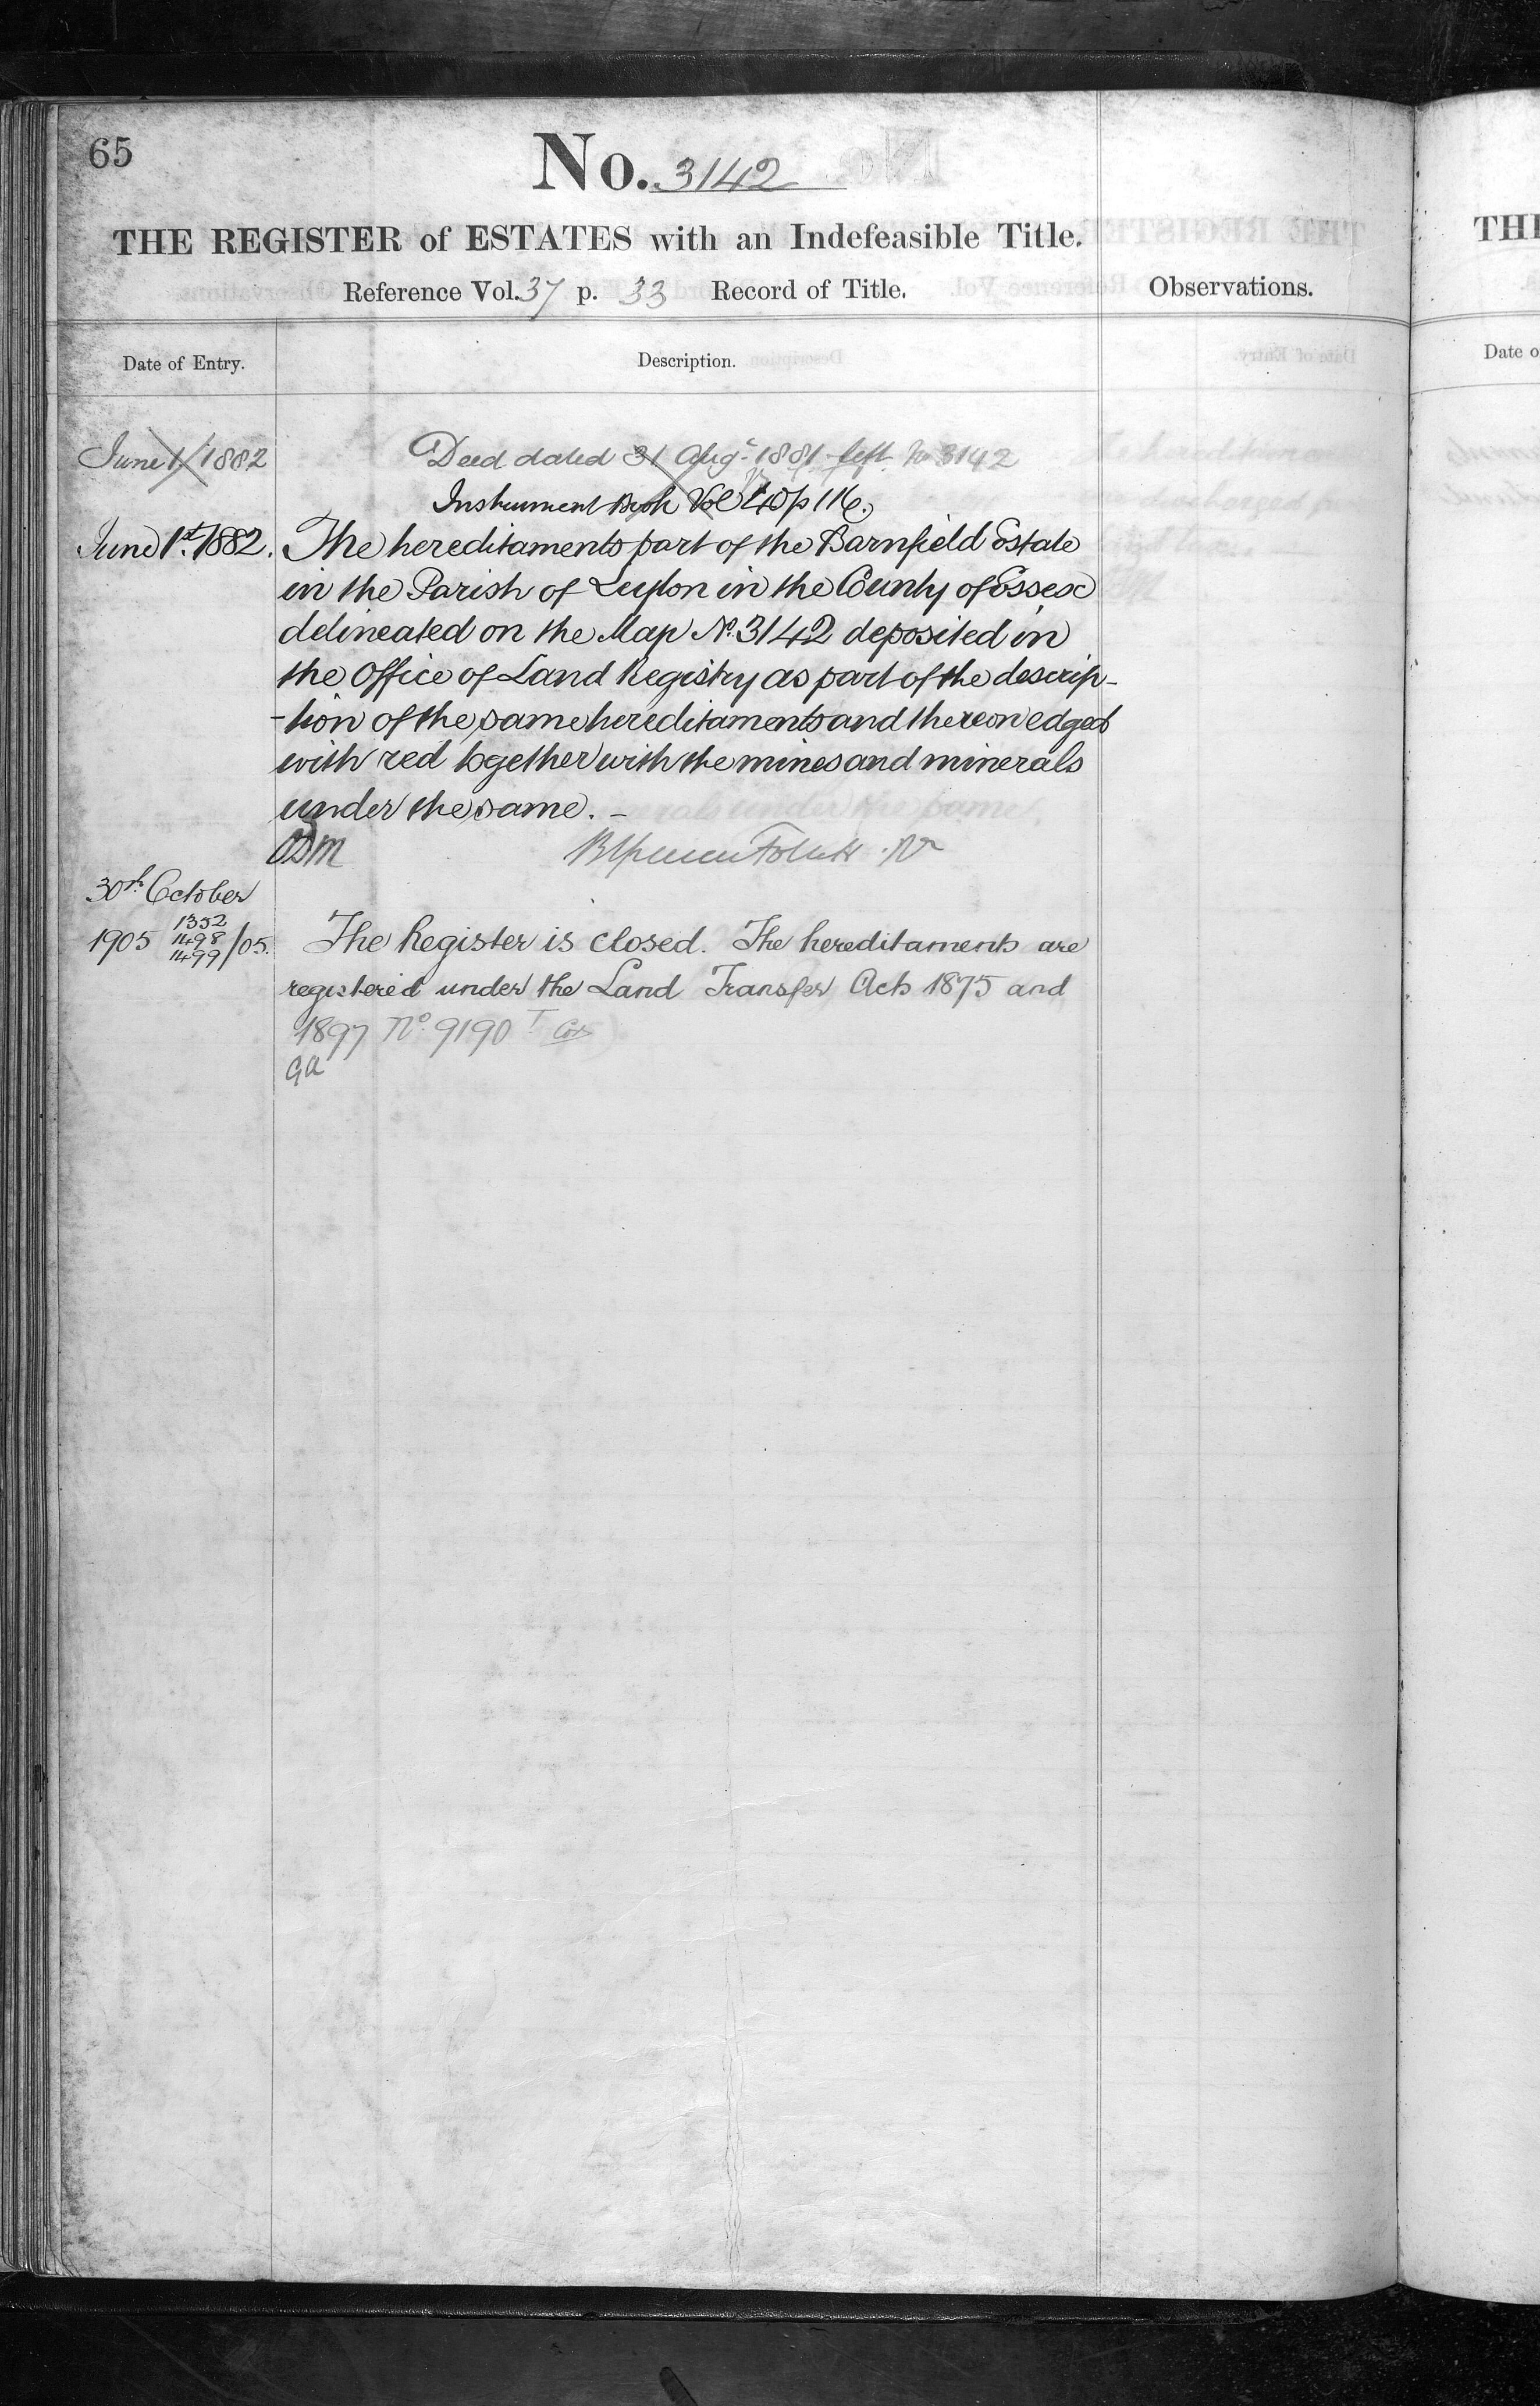 65
No. 3142
THE REGISTER of ESTATES with an Indefeasible Title.
Reference Vol. 37 p. 33 Record of Title.
Observations.
Date of Entry.
Description.
June 1/1882
Deed dated 31 Augt 1881 left No 3142
Instrument Book Vol 40 p 116.
June 1st 1882.
The hereditaments part of the Barnfield Estate
in the Parish of Leyton in the County of Essex
delineated on the Map No. 3142 deposited in
the Office of Land Registry as part of the descrip-
-tion of the same hereditaments and thereon edged
with red together with the mines and minerals
under the same. -
30th October
1905 1352 1498 1499 /05.
The Register is closed. The hereditaments are
registered under the Land Transfer Acts 1875 and
1897 No. 9190
GA
THE
Date o